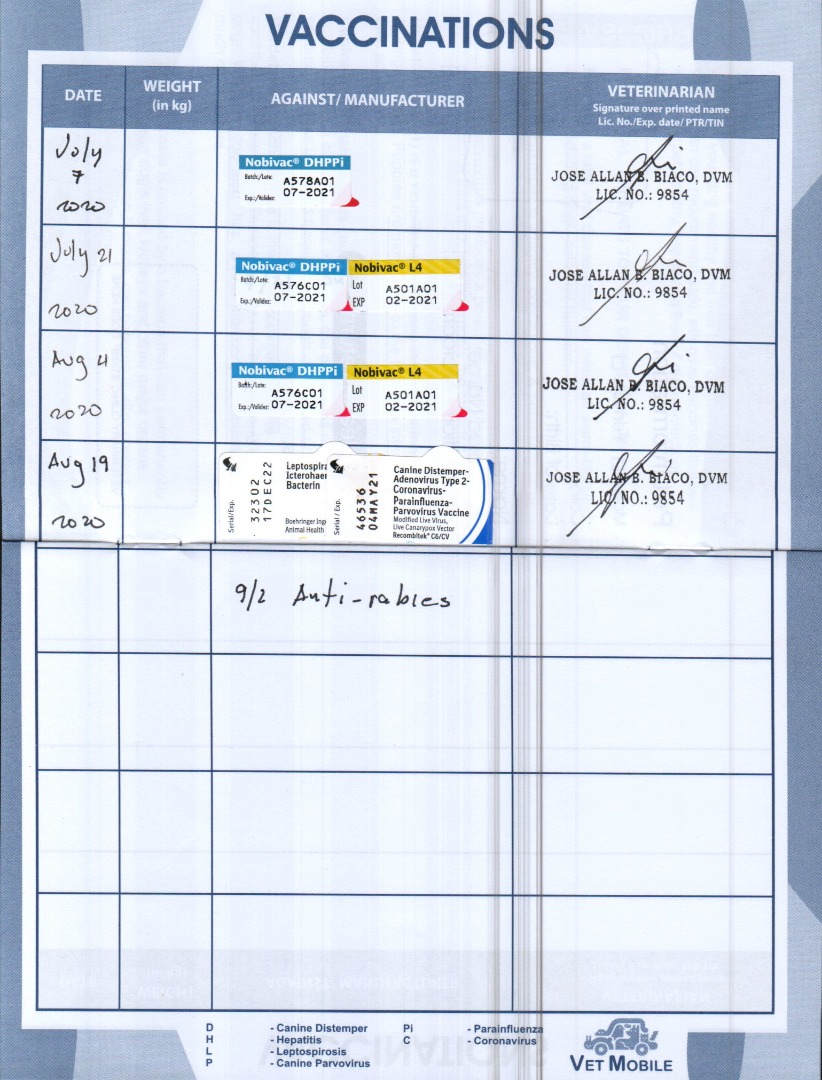 VACCINATIONS
DATE
WEIGHT
(in kg)
AGAINST/ MANUFACTURER
VETERINARIAN
Signature over printed name
Lic. No./Exp. date/ PTR/TIN
July
7
2020
Nobivac® DHPPi
Batch:/Lote:
A578A01
Exp.:/Validez:
07-2021
JOSE ALLAN B. BIACO, DVM
LIC. NO.: 9854
July 21
2020
Nobivac® DHPPi
Batch:/Lote:
A576C01
Exp.:/Validez:
07-2021
Nobivac® L4
Lot
A501A01
EXP
02-2021
JOSE ALLAN B. BIACO, DVM
LIC. NO.: 9854
Aug 4
2020
Nobivac® DHPPi
Batch:/Lote:
A576C01
Exp.:/Validez:
07-2021
Nobivac® L4
Lot
A501A01
EXP
02-2021
JOSE ALLAN B. BIACO, DVM
LIC. NO.: 9854
Aug 19
2020
Serial/Exp.
32302
17DEC22
Leptospira
Icterohaer
Bacterin
Boehringer Inge
Animal Health
Serial / Exp.
46536
04MAY21
Canine Distemper-
Adenovirus Type 2-
Coronavirus-
Parainfluenza-
Parvovirus Vaccine
Modified Live Virus,
Live Canarypox Vector
Recombitek® C6/CV
JOSE ALLAN B. BIACO, DVM
LIC. NO.: 9854
9/2 Anti-rabies
D - Canine Distemper
H - Hepatitis
L - Leptospirosis
P - Canine Parvovirus
Pi - Parainfluenza
C - Coronavirus
VET MOBILE